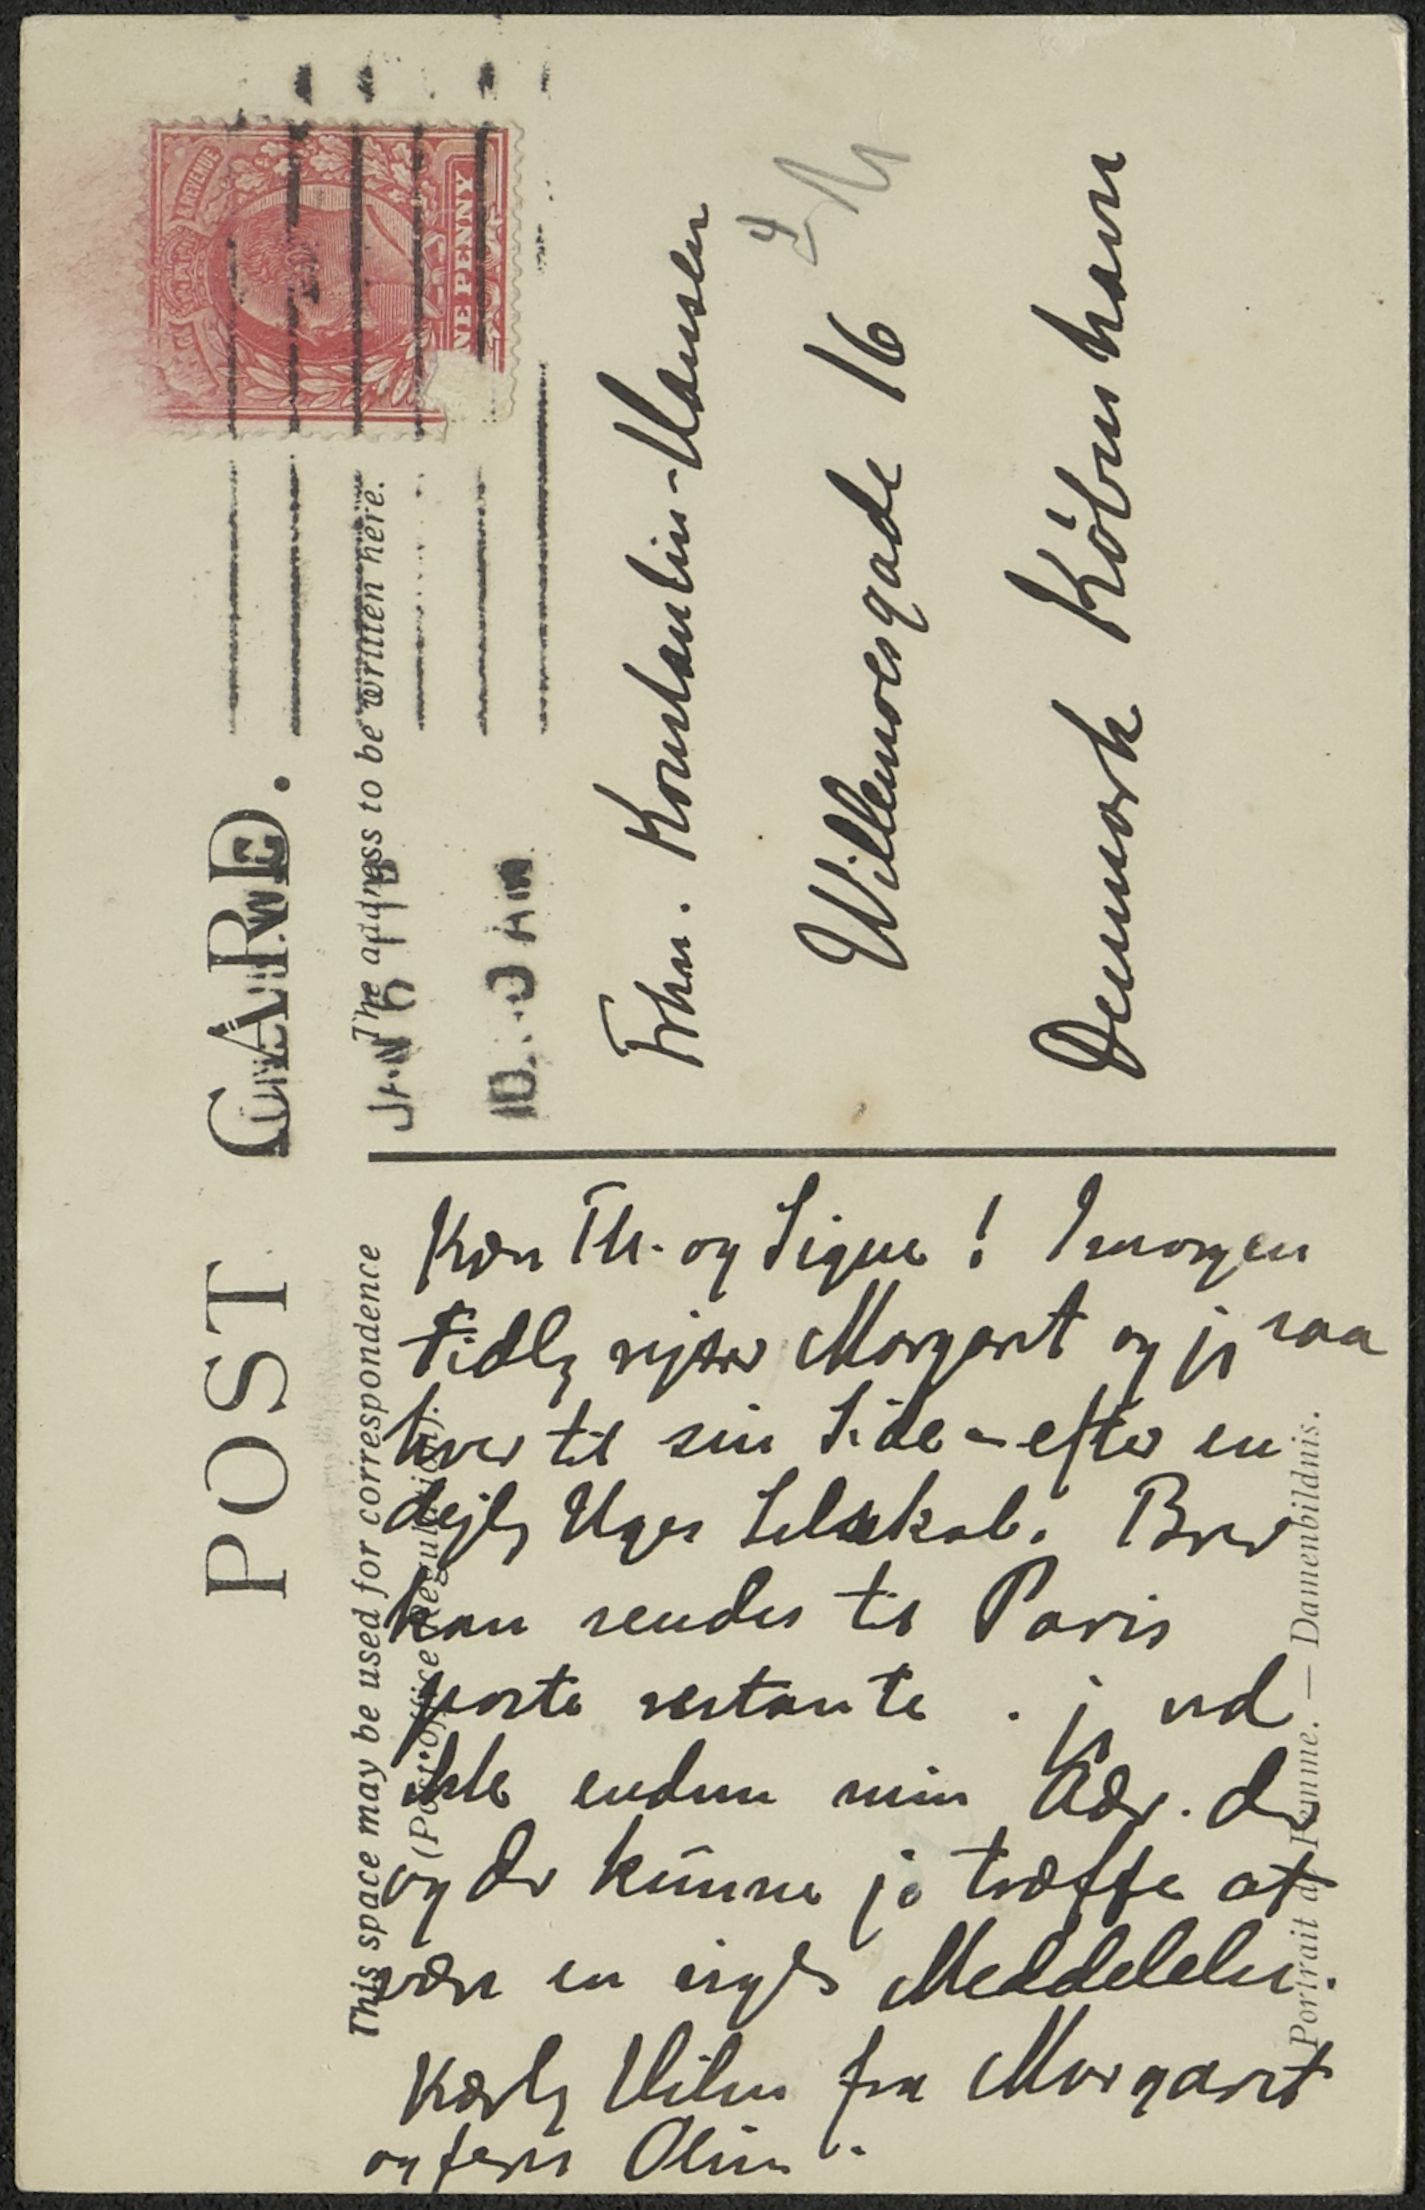 POST CARD.
This space may be used for correspondence
(Post Office Regulation).
The address to be written here.
LONDON. W.C
JAN 6
10. 0 AM
& REVENUE
NE PENNY
Frkn. Konstantin-Hansen
Willemoesgade 16
Denmark København
Kære Th. og Signe! Imorgen
Tidlig rejser Margaret og jeg saa
hver til sin Side – efter en
dejlig Uges Selskab. Brev
kan sendes til Paris
poste restante. jeg ved
ikke endnu min Adr. der
og der kunne jo træffe at
være en nogle Meddelelser.
Kærlig Hilsen fra Margaret
og jeres Olivia.
Portrait de Femme. — Damenbildnis.